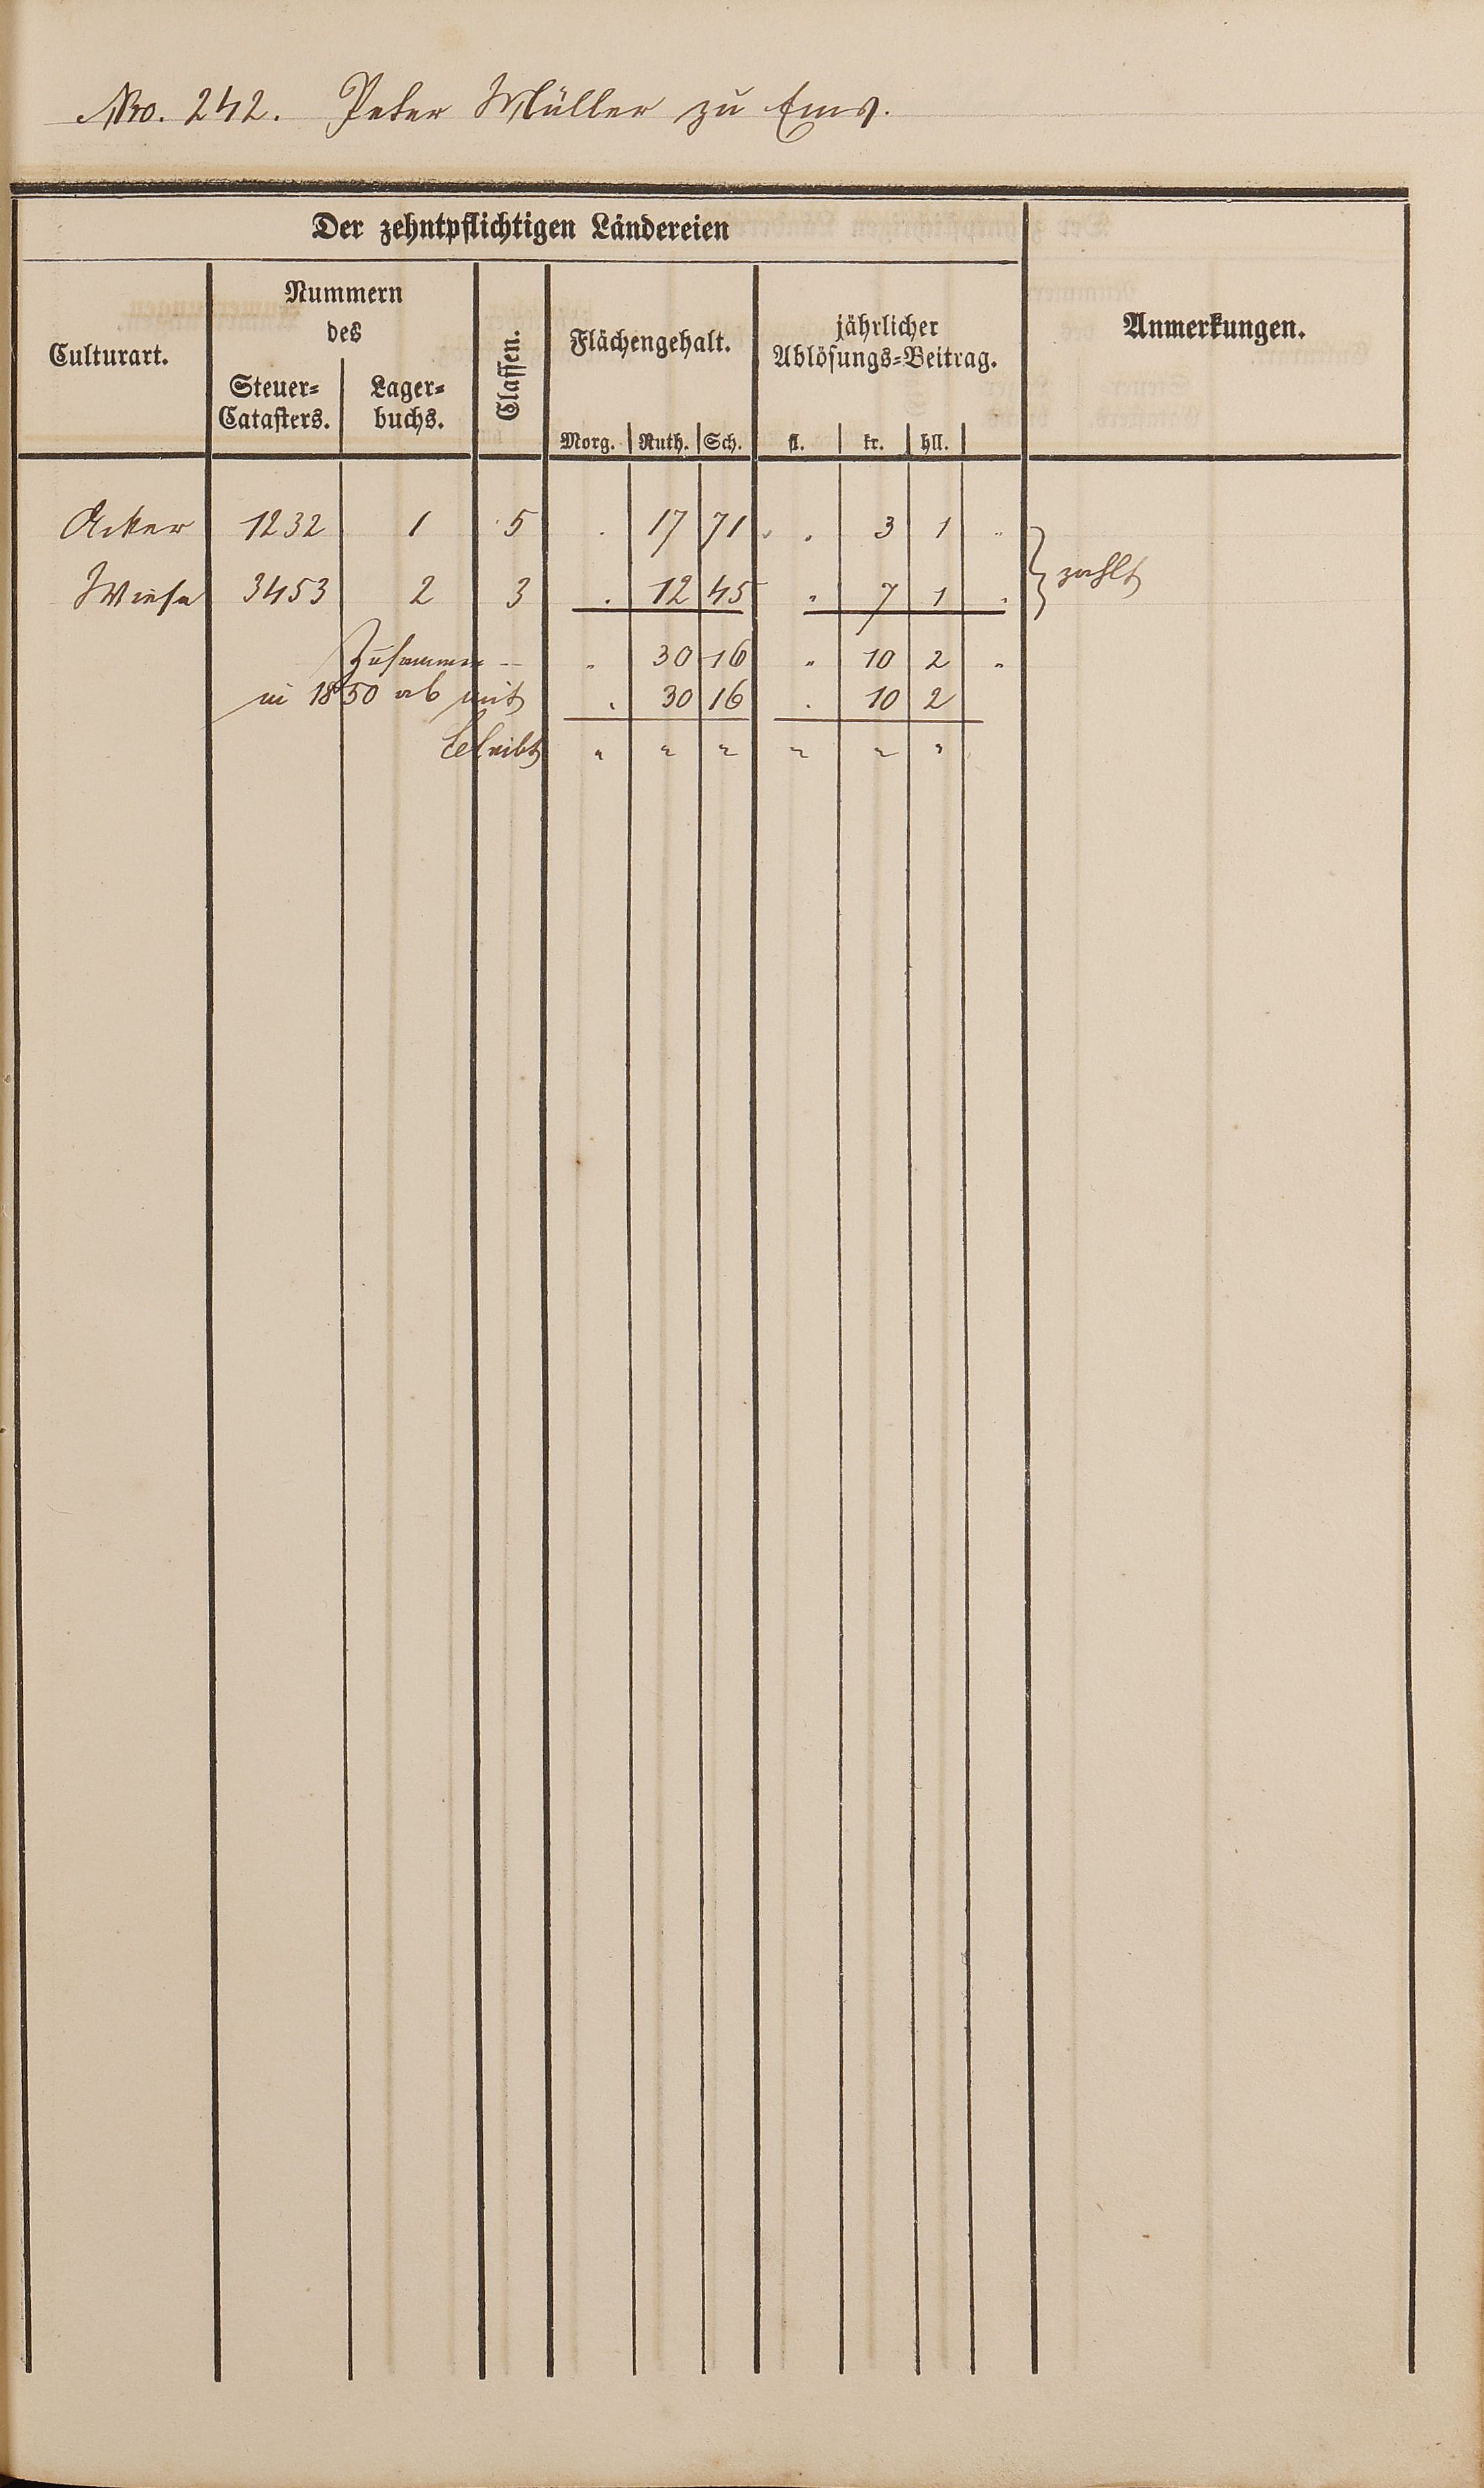 Nro. 242. Peter Müller zu Ems.
Der zehntpflichtigen Ländereien
Culturart.
Nummern
des
Steuer=
Catasters.
Lager=
buchs.
Classen.
Flächengehalt.
Morg. Ruth. Sch.
jährlicher
Ablösungs=Beitrag.
fl. kr. hll.
Anmerkungen.
Acker 1232 1 5 . 17 71 . 3 1 "
Wiese 3453 2 3 . 12 45 " 7 1 "
zahlt
Zusammen — " 30 16 " 10 2 "
in 1850 ab mit . 30 16 . 10 2
bleibt " " " " " "